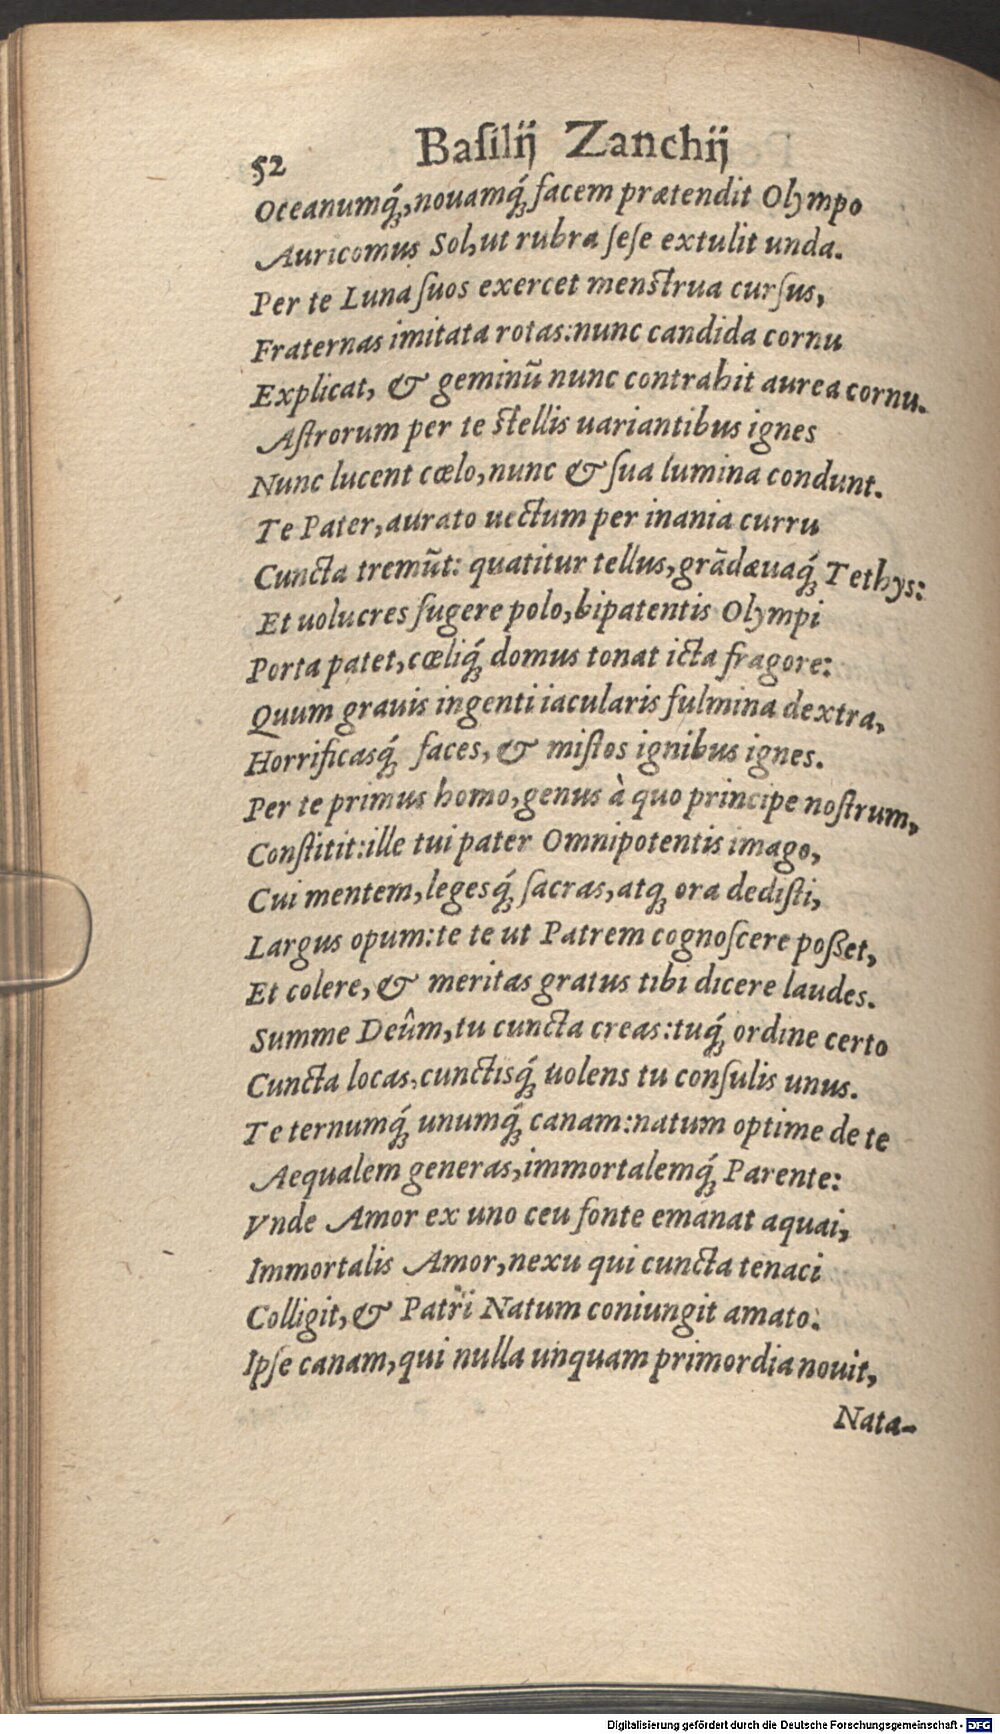 52 Baſilij Zanchij
Oceanumq́;, nouamq́; facem prætendit Olympo
Auricomus Sol, ut rubra ſeſe extulit unda.
Per te Luna ſuos exercet menſtrua curſus,
Fraternas imitata rotas: nunc candida cornu
Explicat, & geminũ nunc contrahit aurea cornu.
Aſtrorum per te ſtellis uariantibus ignes
Nunc lucent cœlo, nunc & ſua lumina condunt.
Te Pater, aurato uectum per inania curru
Cuncta tremũt: quatitur tellus, grãdæuaq́; Tethys:
Et uolucres fugere polo, bipatentis Olympi
Porta patet, cœliq́; domus tonat icta fragore:
Quum grauis ingenti iacularis fulmina dextra,
Horrificasq́; faces, & miſtos ignibus ignes.
Per te primus homo, genus à quo principe noſtrum,
Conſtitit: ille tui pater Omnipotentis imago,
Cui mentem, legesq́; ſacras, atq; ora dediſti,
Largus opum: te te ut Patrem cognoſcere poßet,
Et colere, & meritas gratus tibi dicere laudes.
Summe Deûm, tu cuncta creas: tuq́; ordine certo
Cuncta locas, cunctisq́; uolens tu conſulis unus.
Te ternumq́; unumq́; canam: natum optime de te
Aequalem generas, immortalemq́; Parente:
Vnde Amor ex uno ceu fonte emánat aquai,
Immortalis Amor, nexu qui cuncta tenaci
Colligit, & Patri Natum coniungit amato.
Ipſe canam, qui nulla unquam primordia nouit,
Nata-
Digitalisierung gefördert durch die Deutsche Forschungsgemeinschaft - DFG